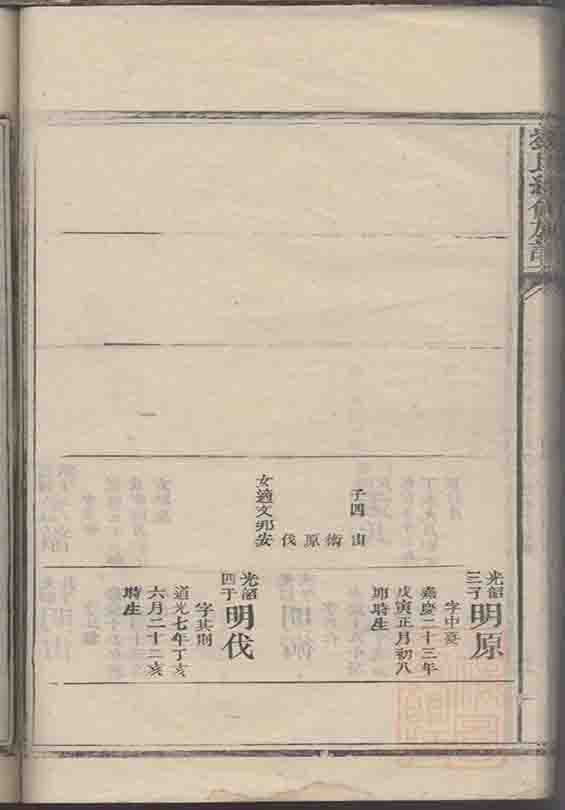 子四
由
術
原
伐
女適文邦安
光韶
三子
明原
字中
嘉慶二十三年
戊寅正月初八
卯時生
光韶
四子
明伐
字其則
道光七年丁亥
六月二十二亥
時生